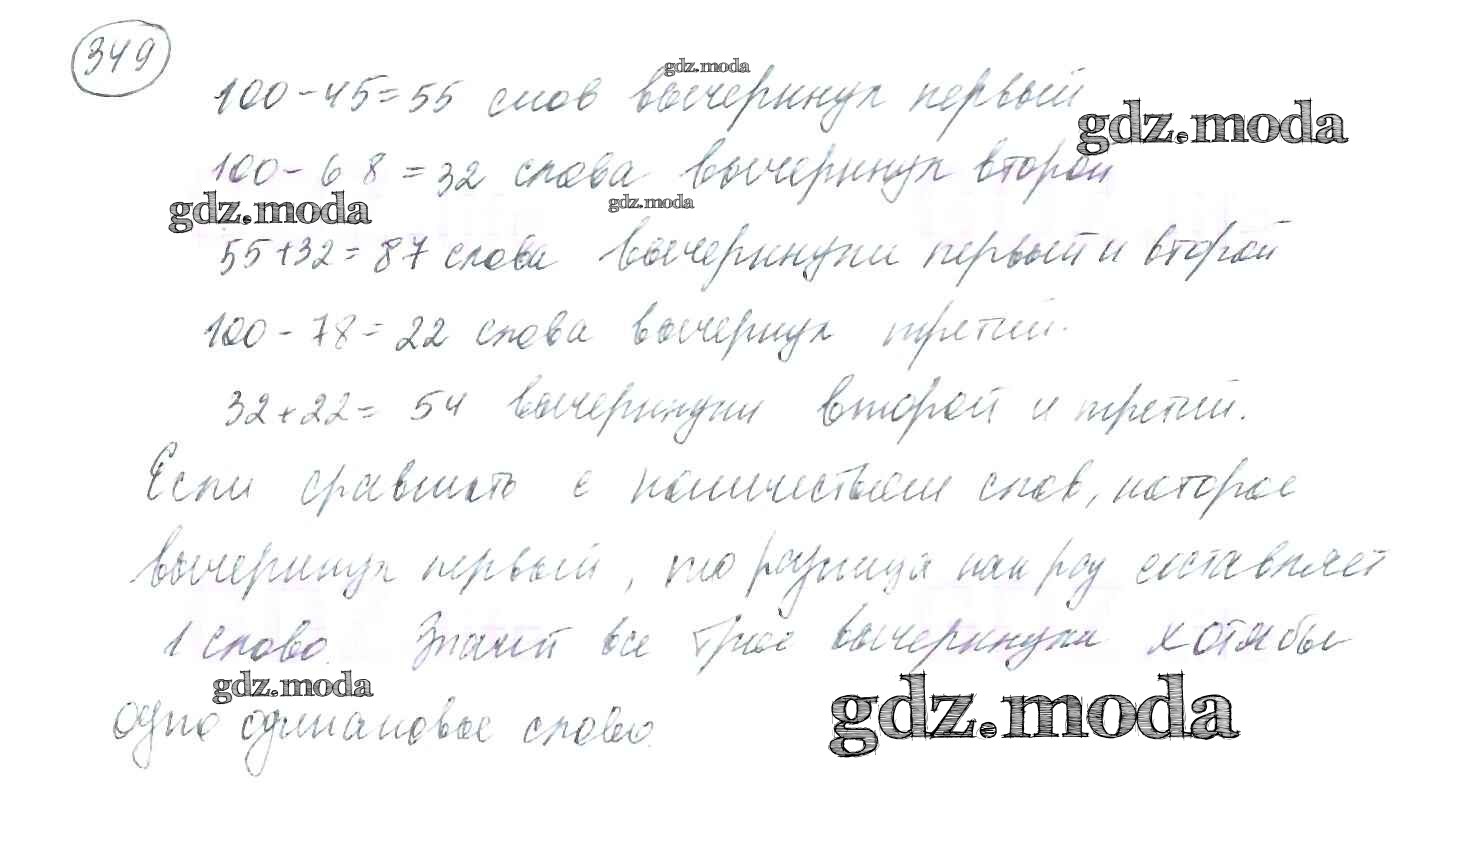 349
gdz.moda
100 - 45 = 55 слов вычеркнул первый
gdz.moda
100 - 68 = 32 слова вычеркнул второй
gdz.moda gdz.moda
55 + 32 = 87 слова вычеркнули первый и второй
100 - 78 = 22 слова вычеркнул третий.
32 + 22 = 54 вычеркнули второй и третий.
Если сравнить с количеством слов, которое
вычеркнул первый, то разница как раз составляет
1 слово. Значит все трое вычеркнули хотя бы
gdz.moda gdz.moda
одно одинаковое слово.